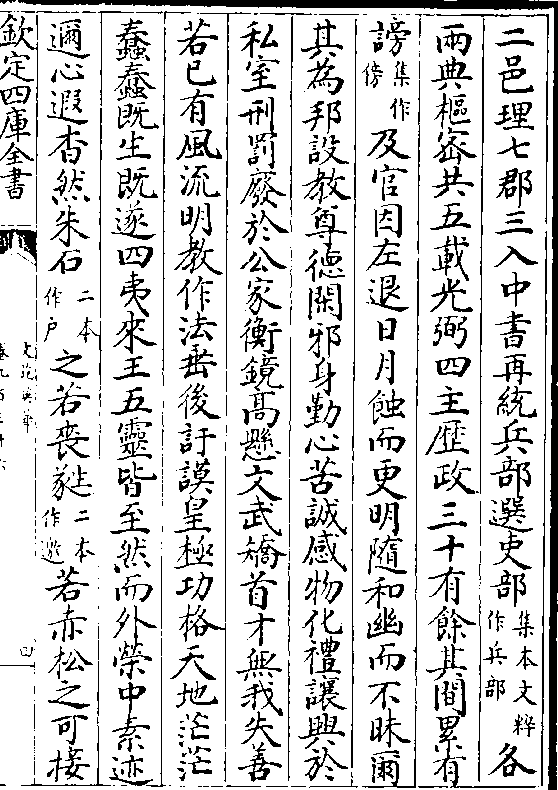 二邑理七郡三入中書再統兵部選吏部集本文粹作兵部各
兩典樞宻共五載光弼四主歴政三十有餘其間累有
謗集作傍及官因左退日月蝕而更明隨和幽而不昧爾
其為邦設教尊德閑邪身勤心苦誠感物化禮讓興於
私室刑罰廢於公家衡鏡髙懸文武矯首才無我失善
若已有風流明教作法垂後訏謨皇極功格天地茫茫
蠢蠢既生既遂四夷來王五靈皆至然而外榮中素迹
邇心遐杳然朱石二本作戶之若喪蕤二本作邈若赤松之可接
欽定四庫全書
文苑英華
四